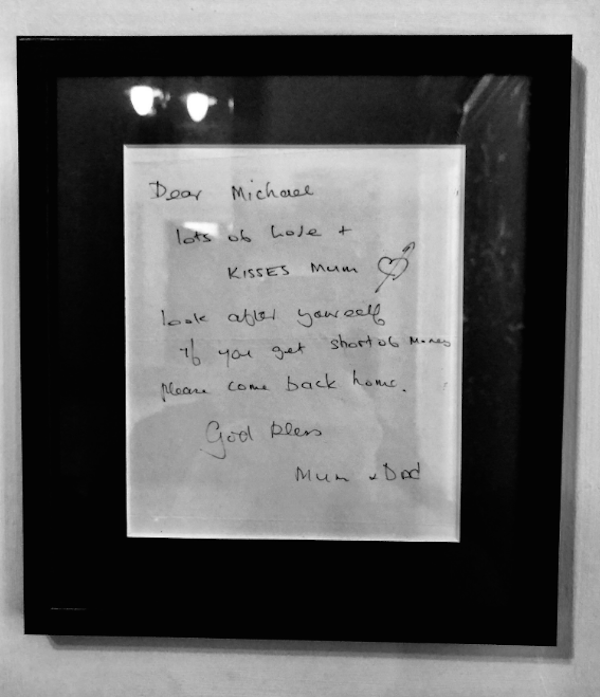 Dear Michael
lots of love +
KISSES Mum
look after yourself
If you get short of money
please come back home.
God Bless
Mum & Dad